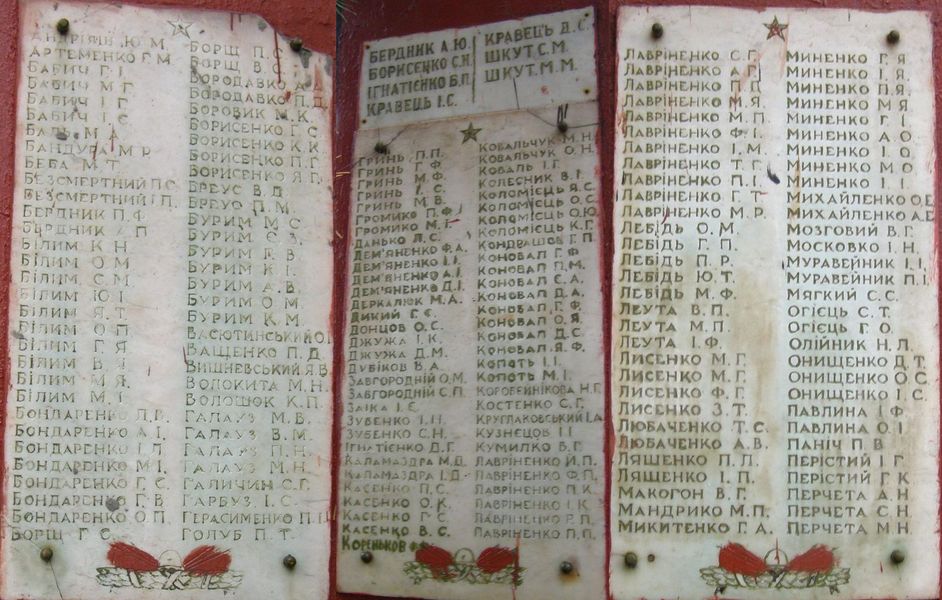 АРТЕМЕНКО Г.М.
БАБИЧ Г.І.
БАБИЧ М.Г.
БАБИЧ І.Г.
БАБИЧ І.С.
М.А.
БАНДУРА М.Р.
БЕБА М.Т.
БЕЗСМЕРТНИЙ П.С.
БЕЗСМЕРТНИЙ І.П.
БЕРДНИК П.Ф.
БЕРДНИК
БІЛИМ К.Н.
БІЛИМ О.М.
БІЛИМ Є.М.
БІЛИМ Ю.І.
БІЛИМ Я.Т.
БІЛИМ О.П.
БІЛИМ Г.Я.
БІЛИМ
БІЛИМ М.Я.
БІЛИМ М.І.
БОНДАРЕНКО
БОНДАРЕНКО А.І.
БОНДАРЕНКО І.Л.
БОНДАРЕНКО М.І.
БОНДАРЕНКО Г.С.
БОНДАРЕНКО Г.В.
БОНДАРЕНКО О.П.
БОРЩ Г.С.
БОРЩ П.С.
БОРЩ В.С.
БОРОДАВКО
БОРОДАВКО П.Д.
БОРОВИК М.К.
БОРИСЕНКО Г.С.
БОРИСЕНКО К.К.
БОРИСЕНКО П.Г.
БОРИСЕНКО Я.Г.
БРЕУС В.Д.
БРЕУС П.М.
БУРИМ М.С.
БУРИМ Є.З.
БУРИМ Г.В.
БУРИМ К.І.
БУРИМ А.В.
БУРИМ О.М.
БУРИМ К.М.
ВАСЮТИНСЬКИЙ
ВАЩЕНКО П.Д.
ВИШНЕВСЬКИЙ Я.В.
ВОЛОКИТА М.Н.
ВОЛОШОК К.П.
ГАЛАУЗ М.В.
ГАЛАУЗ В.М.
ГАЛАУЗ П.Н.
ГАЛАУЗ М.Н.
ГАЛИЧИН С.Г.
ГАРБУЗ І.С.
ГЕРАСИМЕНКО
ГОЛУБ П.Т.
БЕРДНИК А.Ю.
БОРИСЕНКО С.Н.
ІГНАТІЄНКО Б.П.
КРАВЕЦЬ І.С.
КРАВЕЦЬ Д.С.
ШКУТ С.М.
ШКУТ М.М.
ГРИНЬ П.П.
ГРИНЬ Г.Ф.
ГРИНЬ М.Ф.
ГРИНЬ І.С.
ГРИНЬ М.В.
ГРОМИКО П.Ф.
ГРОМИКО М.Г.
ДАНЬКО Л.С.
ДЕМ'ЯНЕНКО Ф.А.
ДЕМ'ЯНЕНКО І.І.
ДЕМ'ЯНЕНКО А.І.
ДЕМ'ЯНЕНКО Д.І.
ДЕРКАЛЮК М.А.
ДИКИЙ Г.Є.
ДОНЦОВ О.С.
ДЖУЖА І.К.
ДЖУЖА Д.М.
ДУБІКОВ В.А.
ЗАВГОРОДНІЙ О.М.
ЗАВГОРОДНІЙ С.П.
ЗАЇКА І.Є.
ЗУБЕНКО І.Н.
ЗУБЕНКО С.Н.
ІГНАТІЄНКО Д.Г.
КАЛАМАЗДРА М.Д.
КАЛАМАЗДРА І.Д.
КАСЕНКО П.С.
КАСЕНКО О.К.
КАСЕНКО Г.С.
КАСЕНКО В.С.
КОРЕНЬКОВ
КОВАЛЬЧУК М.Н.
КОВАЛЬЧУК О.Н.
КОВАЛЬ І.Г.
КОЛЕСНИК В.І.
КОЛОМІЄЦЬ Я.С.
КОЛОМІЄЦЬ О.С.
КОЛОМІЄЦЬ О.Ю.
КОЛОМІЄЦЬ К.Г.
КОНДРАШОВ Г.П.
КОНОВАЛ Г.Ф.
КОНОВАЛ П.М.
КОНОВАЛ Є.А.
КОНОВАЛ Д.А.
КОНОВАЛ Г.Ф.
КОНОВАЛ О.Я.
КОНОВАЛ Д.С.
КОНОВАЛ Я.Ф.
КОПОТЬ І.І.
КОПОТЬ М.І.
КОРОБЕЙНІКОВА Н.Г.
КОСТЕНКО С.Г.
КРУГЛАКОВСЬКИЙ І.А.
КУЗНЕЦОВ І.І.
КУМИЛКО В.Г.
ЛАВРІНЕНКО Й.П.
ЛАВРІНЕНКО Ф.П.
ЛАВРІНЕНКО П.К.
ЛАВРІНЕНКО І.К.
ЛАВРІНЕНКО Г.П.
ЛАВРІНЕНКО П.П.
ЛАВРІНЕНКО С.Г.
ЛАВРІНЕНКО А.Г.
ЛАВРІНЕНКО П.Д.
ЛАВРІНЕНКО М.Я.
ЛАВРІНЕНКО М.П.
ЛАВРІНЕНКО Ф.І.
ЛАВРІНЕНКО І.М.
ЛАВРІНЕНКО Т.Г.
ЛАВРІНЕНКО П.І.
ЛАВРІНЕНКО Г.Т.
ЛАВРІНЕНКО М.Р.
ЛЕБІДЬ О.М.
ЛЕБІДЬ Г.П.
ЛЕБІДЬ П.Р.
ЛЕБІДЬ Ю.Т.
ЛЕБІДЬ М.Ф.
ЛЕУТА В.П.
ЛЕУТА М.П.
ЛЕУТА І.Ф.
ЛИСЕНКО М.Г.
ЛИСЕНКО М.Г.
ЛИСЕНКО Ф.Г.
ЛИСЕНКО З.Т.
ЛЮБАЧЕНКО Т.С.
ЛЮБАЧЕНКО А.В.
ЛЯЩЕНКО П.Л.
ЛЯЩЕНКО І.П.
МАКОГОН В.Г.
МАНДРИКО М.П.
МИКИТЕНКО Г.А.
МИНЕНКО Г.Я.
МИНЕНКО І.Я.
МИНЕНКО П.Я.
МИНЕНКО М.Я.
МИНЕНКО Г.І.
МИНЕНКО А.О.
МИНЕНКО І.О.
МИНЕНКО М.О.
МИНЕНКО І.І.
МИХАЙЛЕНКО О.Е.
МИХАЙЛЕНКО А.Е.
МОЗГОВИЙ В.Г.
МОСКОВКО І.Н.
МУРАВЕЙНИК І.І.
МУРАВЕЙНИК П.І.
МЯГКИЙ С.С.
ОГІЄЦЬ С.Т.
ОГІЄЦЬ Г.О.
ОЛІЙНИК Н.Л.
ОНИЩЕНКО Д.Т.
ОНИЩЕНКО О.С.
ОНИЩЕНКО І.С.
ПАВЛИНА І.Ф.
ПАВЛИНА О.І.
ПАНІЧ П.В.
ПЕРІСТИЙ І.Г.
ПЕРІСТИЙ Г.К.
ПЕРЧЕТА А.Н.
ПЕРЧЕТА С.Н.
ПЕРЧЕТА М.Н.